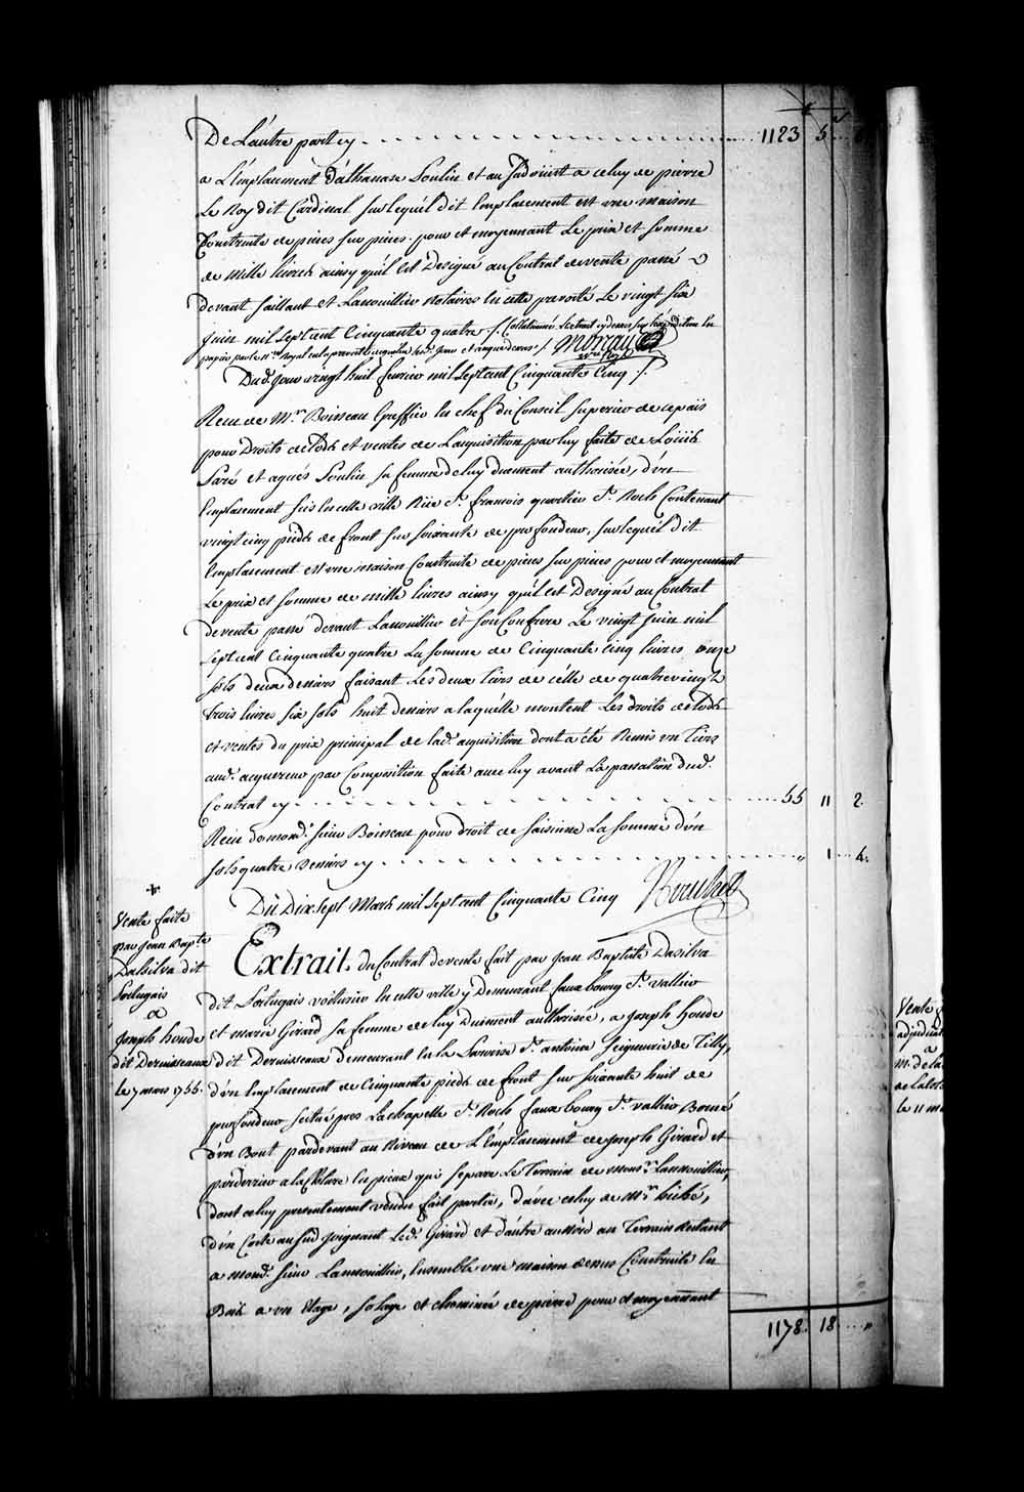 De L'autre part cy 1123 5 6
a L'Emplacement d'athanase Soulin et au Sud ouest a celuy de pierre
Le Roy dit Cardinal sur lequel dit Emplacement est une maison
Construite de pieces sur pieces pour et moyennant Le prix et somme
de mille livres ainsy qu'il est Designé au Contrat de vente passé
devant Saillant et Lanouillier notaires en cette prevoté Le vingt six
juin mil sept cent Cinquante quatre
Moreau
Dud. jour vingt huit fevrier mil sept cent Cinquante Cinq
Reçu de Mr. Boisseau Greffier en chef du Conseil superieur de ce païs
pour Droits de Lods et ventes de L'acquisition par luy faite de Loüis
Paré et agnés Soulin sa femme de luy duement authorisée, d'un
Emplacement sis en cette ville Rüe St. francois quartier St. Roch Contenant
vingt cinq pieds de front sur soixante de profondeur, sur lequel dit
Emplacement est une maison Construite de pieces sur pieces pour et moyennant
Le prix et somme de mille livres ainsy qu'il est Designé au Contrat
de vente passé devant Lanouillier et son Confrere Le vingt juin mil
sept cent Cinquante quatre La somme de Cinquante cinq livres onze
sols deux deniers faisant Les deux tiers de célle de quatre vingt
trois livres six sols huit deniers a laquélle montent Les droits de Lods
et ventes du prix principal de lad. acquisition dont a été Remis un Tiers
aud. acquereur par Composition faite avec luy avant La passation dud.
Contrat cy 55 11 2
Reçu de mond. sieur Boisseau pour droit de saisinne La somme d'un
sols quatre Deniers cy " 1 4
Du Dix sept Mars mil sept cent Cinquante Cinq
Vente faite
par Jean Bapte.
Dasilva dit
Portugais
a
Joseph houde
dit Deruisseaux
le 7 mars 1755.
Extrait du Contrat de vente fait par Jean Baptiste Dasilva
dit Portugais voiturier en cette ville y Demeurant faux bourg St. vallier
et marie Girard sa femme de luy Duement authorisée, a Joseph houde
dit Deruisseaux demeurant en la Paroisse St. antoine seigneurie de Tilly,
d'un Emplacement de Cinquante pieds de front sur soixante huit de
profondeur scitué pres La chapelle St. Roch faux bourg St. vallier Borné
d'un Bout pardevant au Niveau de L'Emplacement de Joseph Girard et
parderriere a la Clôture en pieux qui separe Le Terrain de monsr. Lanouillier,
dont celuy presentement vendu fait partie, d'avec celuy de Mr. hiché,
d'un Coté au sud joignant Led. Girard et d'autre au Terrain Restant
a mond. sieur Lanouillier, Ensemble une maison dessus Construite En
Bois a un Etage, solage et cheminée de pierre pour et moyennant
1178 18 "
Vente
adjudicat
a
m. de la
le 11 ma